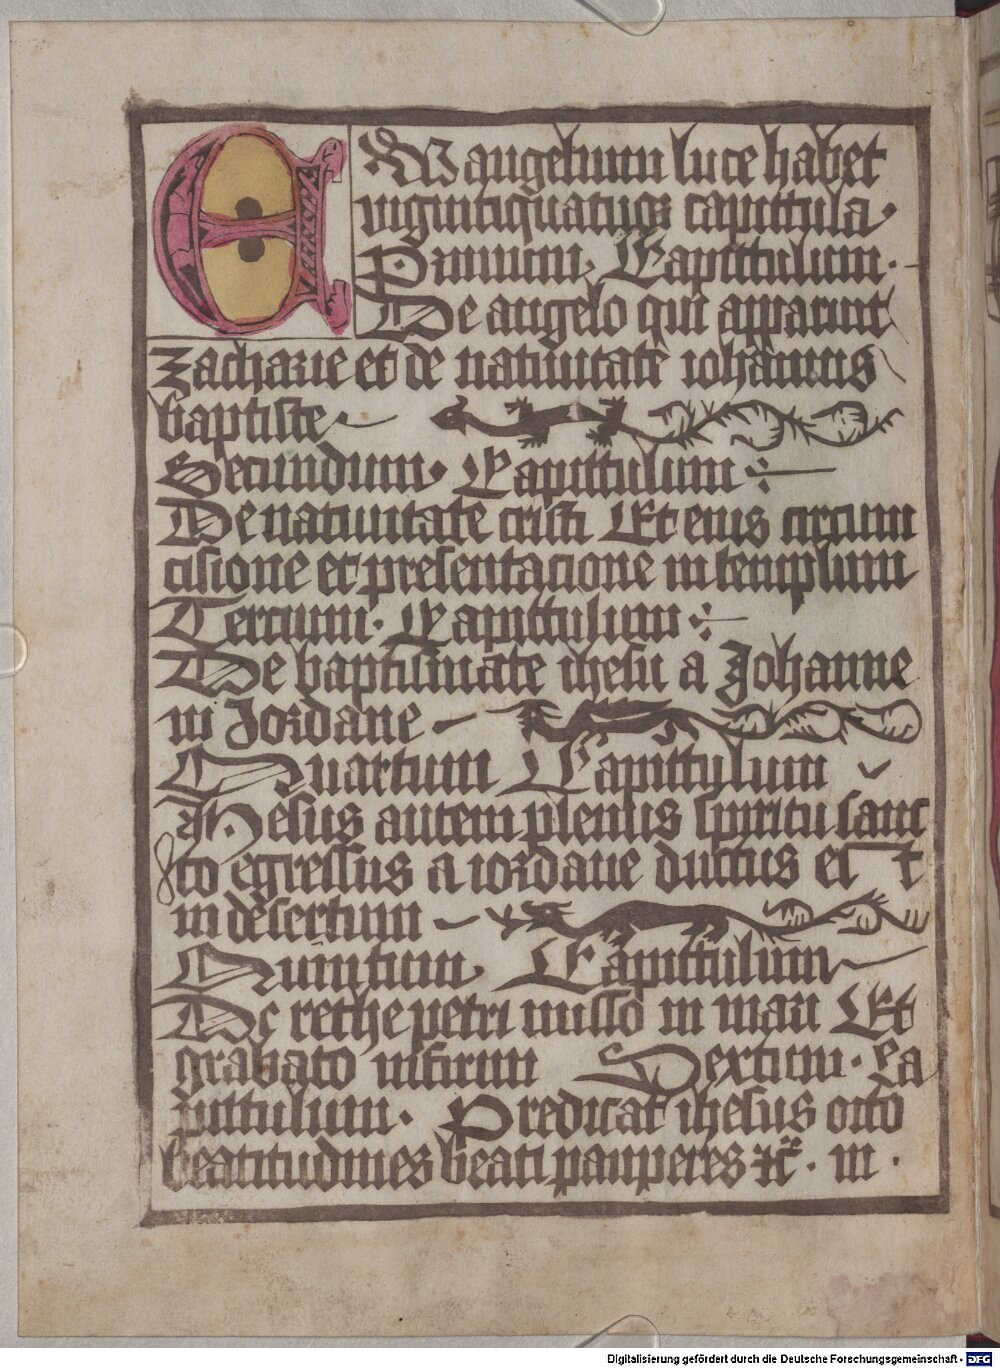 EWangelium luce habet
viginti quatuor capittula.
Primum. Capittulum.
De angelo qui apparuit
zacharie et de nativitate iohannis
baptiste
Secundum. Capittulum
De nativitate cristi Et eius circum
cisione et presentacione in templum
Tercium. Capittulum
De baptismate ihesu a Johanne
in Jordane
Quartum Capittulum
Jhesus autem plenus spiritu sanc
to egressus a iordane ductus est
in desertum
Quintum Capittulum
De rethe petri misso in mari Et
grabato infirmi Sextum. Ca
pittulum. Predicat ihesus octo
beatitudines beati pauperes
Digitalisierung gefördert durch die Deutsche Forschungsgemeinschaft - DFG